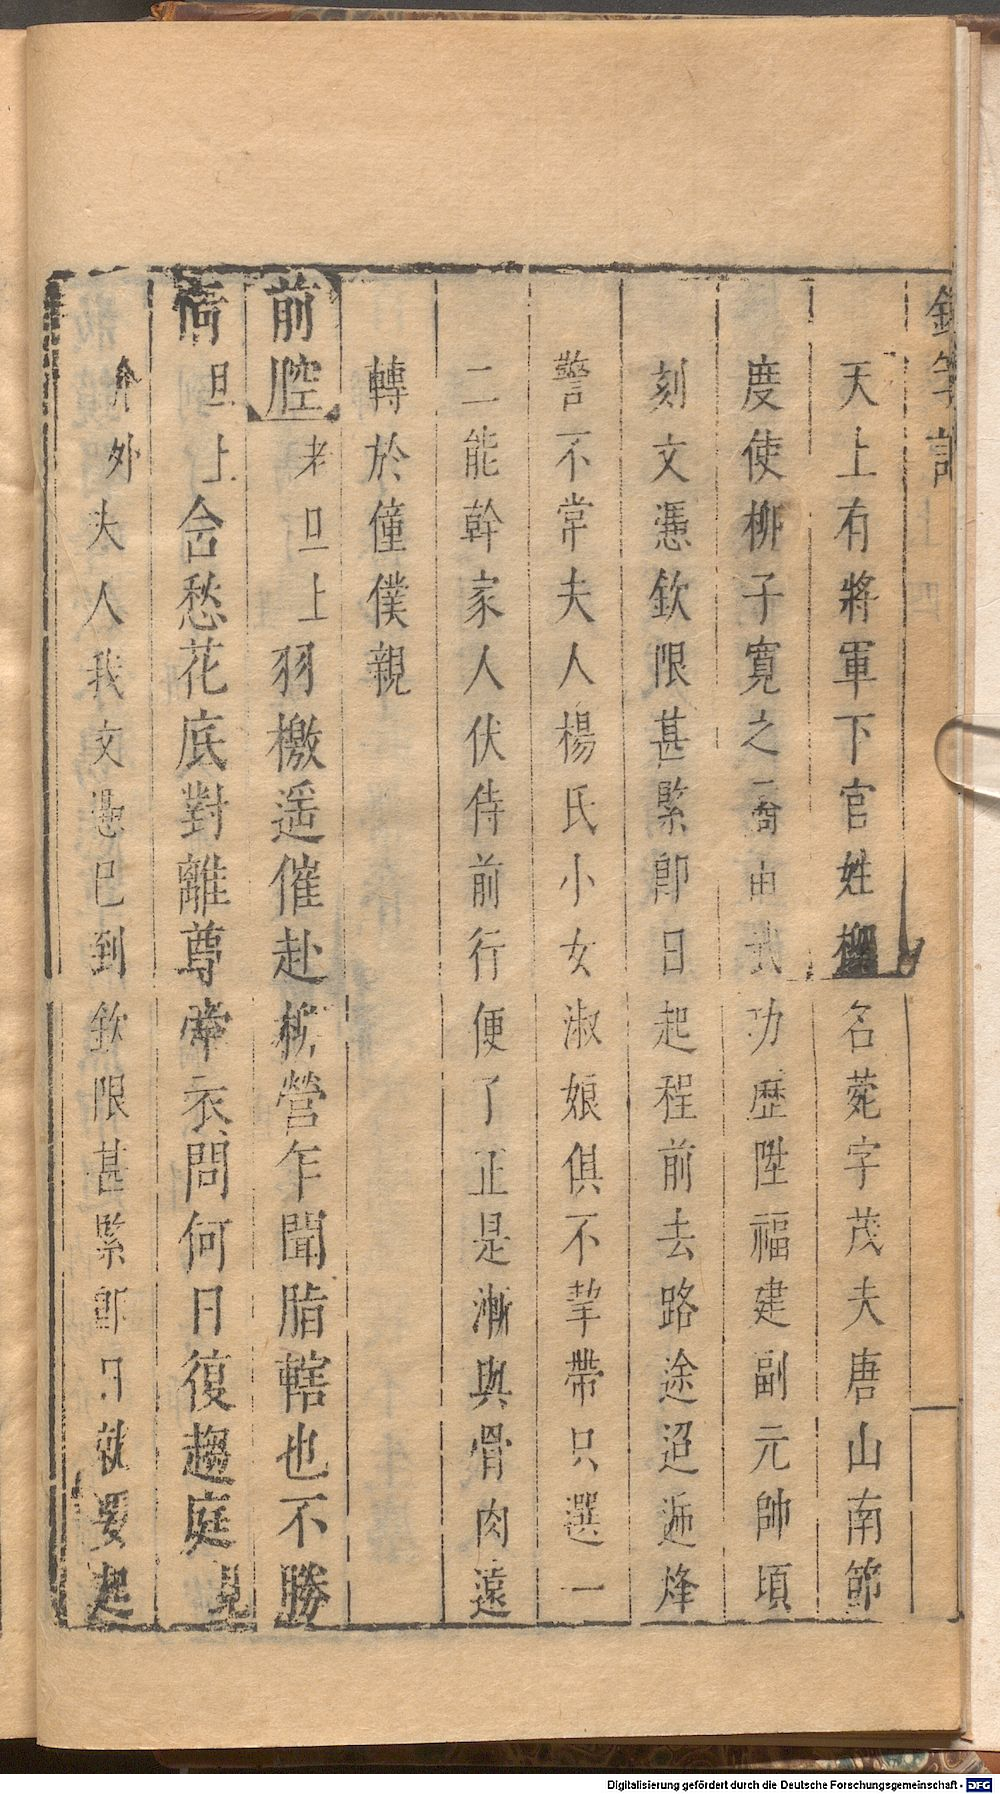 天上有將軍下官姓柳名菀字茂夫唐山南節
度使柳子寬之裔由武功歷陞福建副元帥頃
刻文憑欽限甚緊即日起程前去路途迢遞烽
警不常夫人楊氏小女淑娘俱不挈帶只選一
二能幹家人伏侍前行便了正是漸與骨肉遠
轉於僮僕親
前腔 老旦上 羽檄遥催赴柳營乍聞脂轄也不勝
情 旦上 含愁花底對離尊牽衣問何日復趨庭 見
介 外 夫人我文憑已到欽限甚緊即日就要起
Digitalisierung gefördert durch die Deutsche Forschungsgemeinschaft - DFG